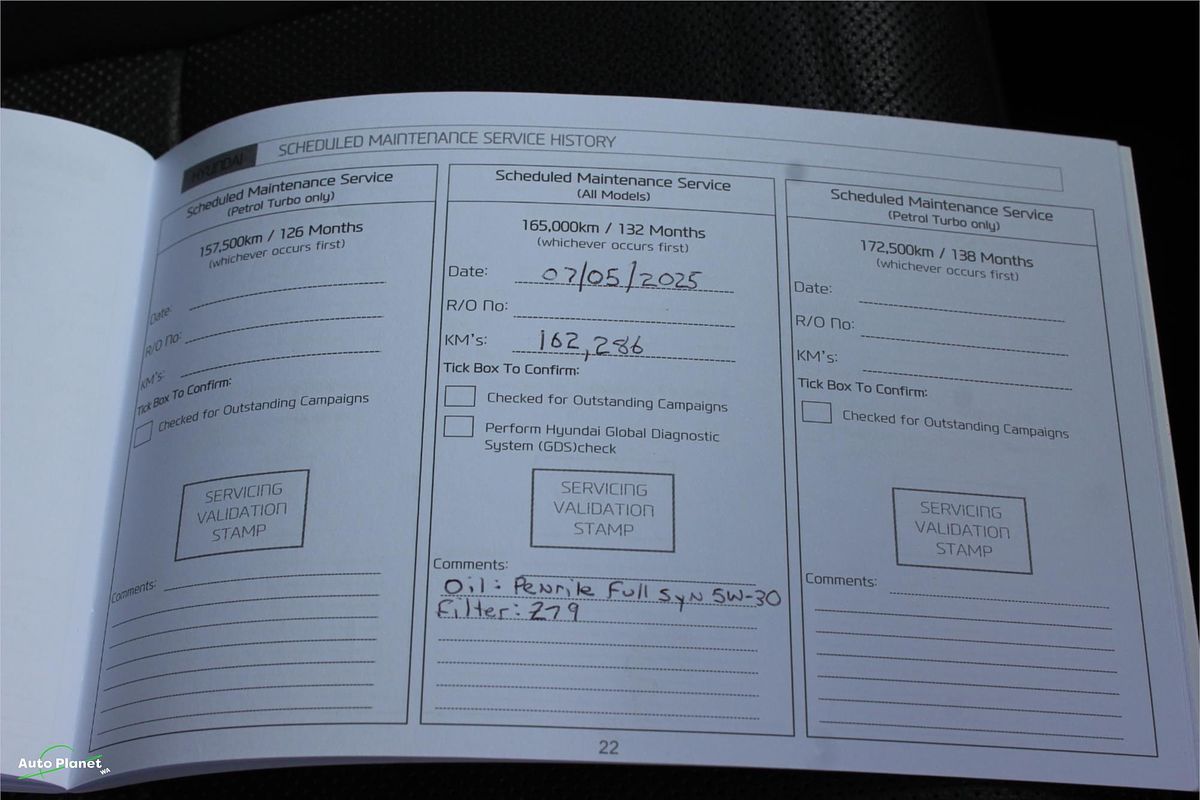 HYUNDAI
SCHEDULED MAINTENANCE SERVICE HISTORY
Scheduled Maintenance Service
(Petrol Turbo only)
157,500km / 126 Months
(whichever occurs first)
Date:
R/O No:
KM's:
Tick Box To Confirm:
Checked for Outstanding Campaigns
SERVICING
VALIDATION
STAMP
Comments:
Scheduled Maintenance Service
(All Models)
165,000km / 132 Months
(whichever occurs first)
Date: 07/05/2025
R/O No:
KM's: 162,286
Tick Box To Confirm:
Checked for Outstanding Campaigns
Perform Hyundai Global Diagnostic
System (GDS)check
SERVICING
VALIDATION
STAMP
Comments:
Oil: Penrite Full Syn 5W-30
Filter: Z79
Scheduled Maintenance Service
(Petrol Turbo only)
172,500km / 138 Months
(whichever occurs first)
Date:
R/O No:
KM's:
Tick Box To Confirm:
Checked for Outstanding Campaigns
SERVICING
VALIDATION
STAMP
Comments:
22
Auto Planet
WA